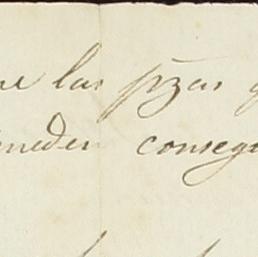 ue las pzas q
uneden consegu